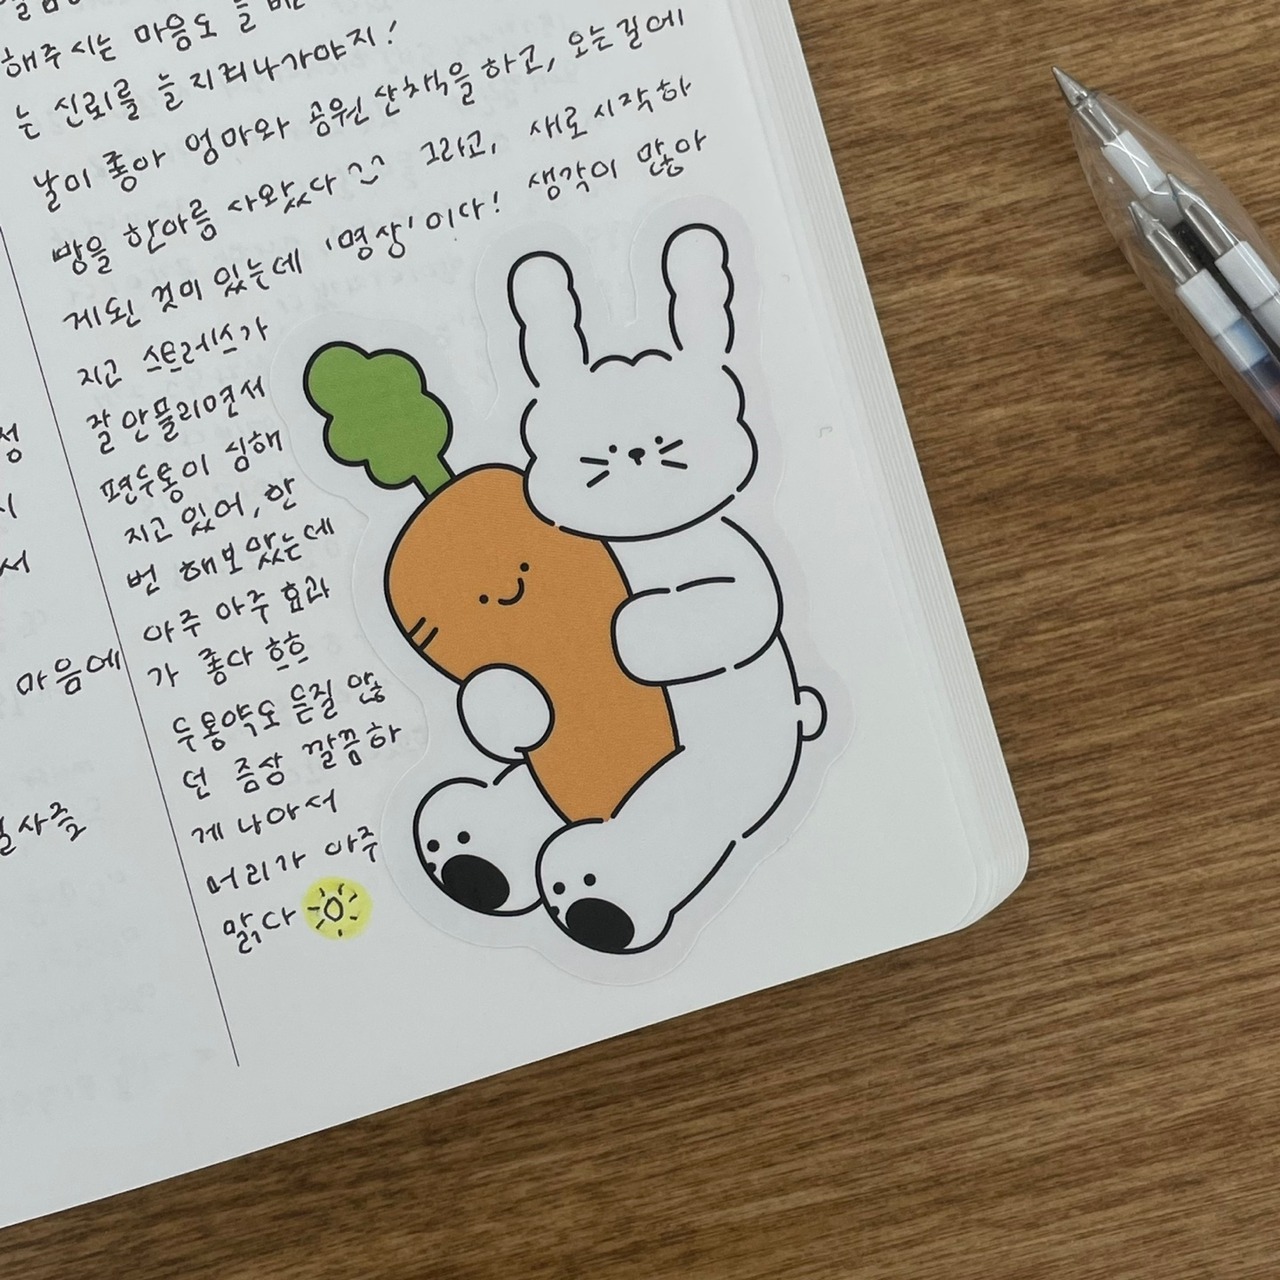 해주시는 마음도 늘
는 신뢰를 늘 지켜나가야지!
날이 좋아 엄마와 공원 산책을 하고, 오는길에
빵을 한아름 사왔다 그리고, 새로 시작하
게된 것이 있는데 '명상'이다! 생각이 많아
지고 스트레스가
잘 안풀리면서
편두통이 심해
지고 있어, 한
번 해보았는데
아주 아주 효과
가 좋다 흐흐
두통약도 듣질 않
던 증상 깔끔하
게 나아서
머리가 아주
맑다
정
서
마음에